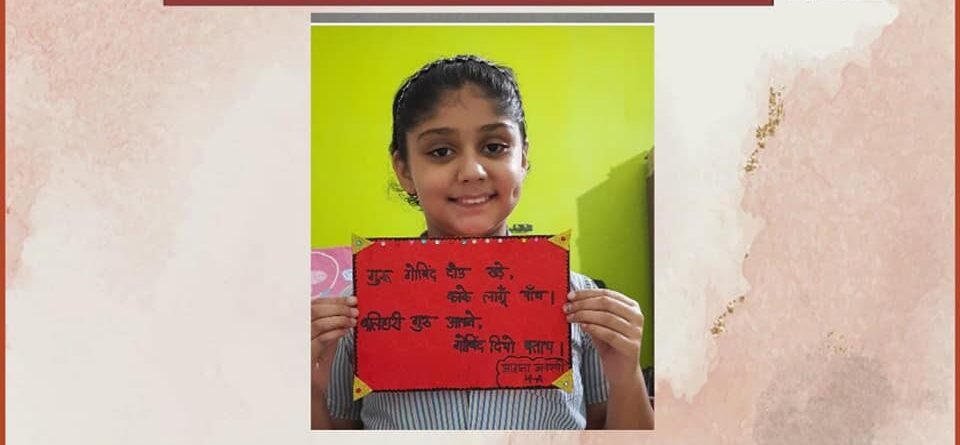 गुरू गोबिंद दौऊ खड़े,
काके लागूँ पाँय।
बलिहारी गुरु आपने,
गोबिंद दियो बताय।
4-A